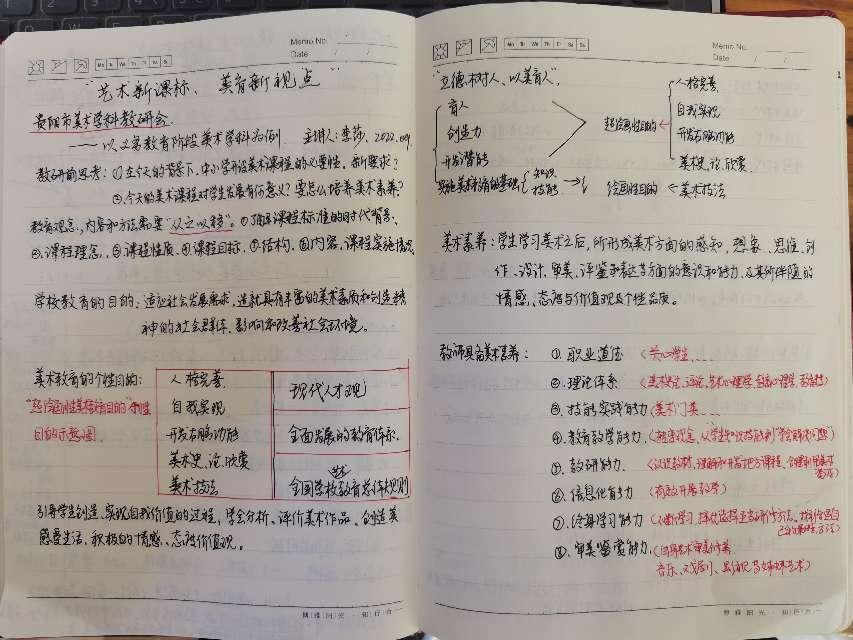 Memo No.
Mo Tu We Th Fr Sa Su
Date / /
"艺术新课标、美育新视点"
贵阳市美术学科教研会
——以义务教育阶段美术学科为例 主讲人:李莎、2022.09.
教研前思考:①在今天的背景下,中小学开设美术课程的必要性。新时要求?
②今天的美术课程对学生发展有何意义?要怎么培养美术素养?
教育观念、内容和方法需要"从之以移"。①顶层课程标准的时代背景、
②课程理念、③课程性质、④课程目标、⑤结构、⑥内容、课程实施情况
学校教育的目的:适应社会发展需求,造就具有丰富的美术素质和创造精
神的社会群体,影响和改善社会环境。
美术教育的个性目的:
"超绘画性美术教育目的"创造
目的示意图
人格完善
自我实现
开发右脑功能
美术史、论、欣赏
美术技法
现代人才观
全面发展的教育体系
全国学校教育总体规则
引导学生创造、实现自我价值的过程,学会分析、评价美术作品,创造美
感受生活、积极的情感、态度价值观。
博雅阳光·知行合一
Memo No.
Mo Tu We Th Fr Sa Su
Date / /
"立德树人、以美育人"
育人
创造力
开发潜能
实施美术教育的基础 知识 技能
超绘画性目的
人格完善
自我实现
开发右脑功能
美术史、论、欣赏
绘画性目的 美术技法
美术素养:学生学习美术之后,所形成美术方面的感知、想象、思维、创
作、设计、审美、评鉴和表达等方面的意识和能力,及其所伴随的
情感、态度与价值观及个性品质。
教师具备美术素养:①职业道德(关心学生...
②理论体系(美术史、论、艺术心理学、教育心理学、教育学)
③技能实践能力(美术门类...
④教育教学能力(融合观念,从"学生知识技能"到"学会解决问题")
⑤教研能力(认识教材,理解和开发地方课程、合理利用美术资源)
⑥信息化能力(有效开展教学)
⑦终身学习能力(不断学习,
⑧审美鉴赏能力(自身美术审美修养
音乐、戏剧、影视等姊妹艺术)
博雅阳光·知行合一